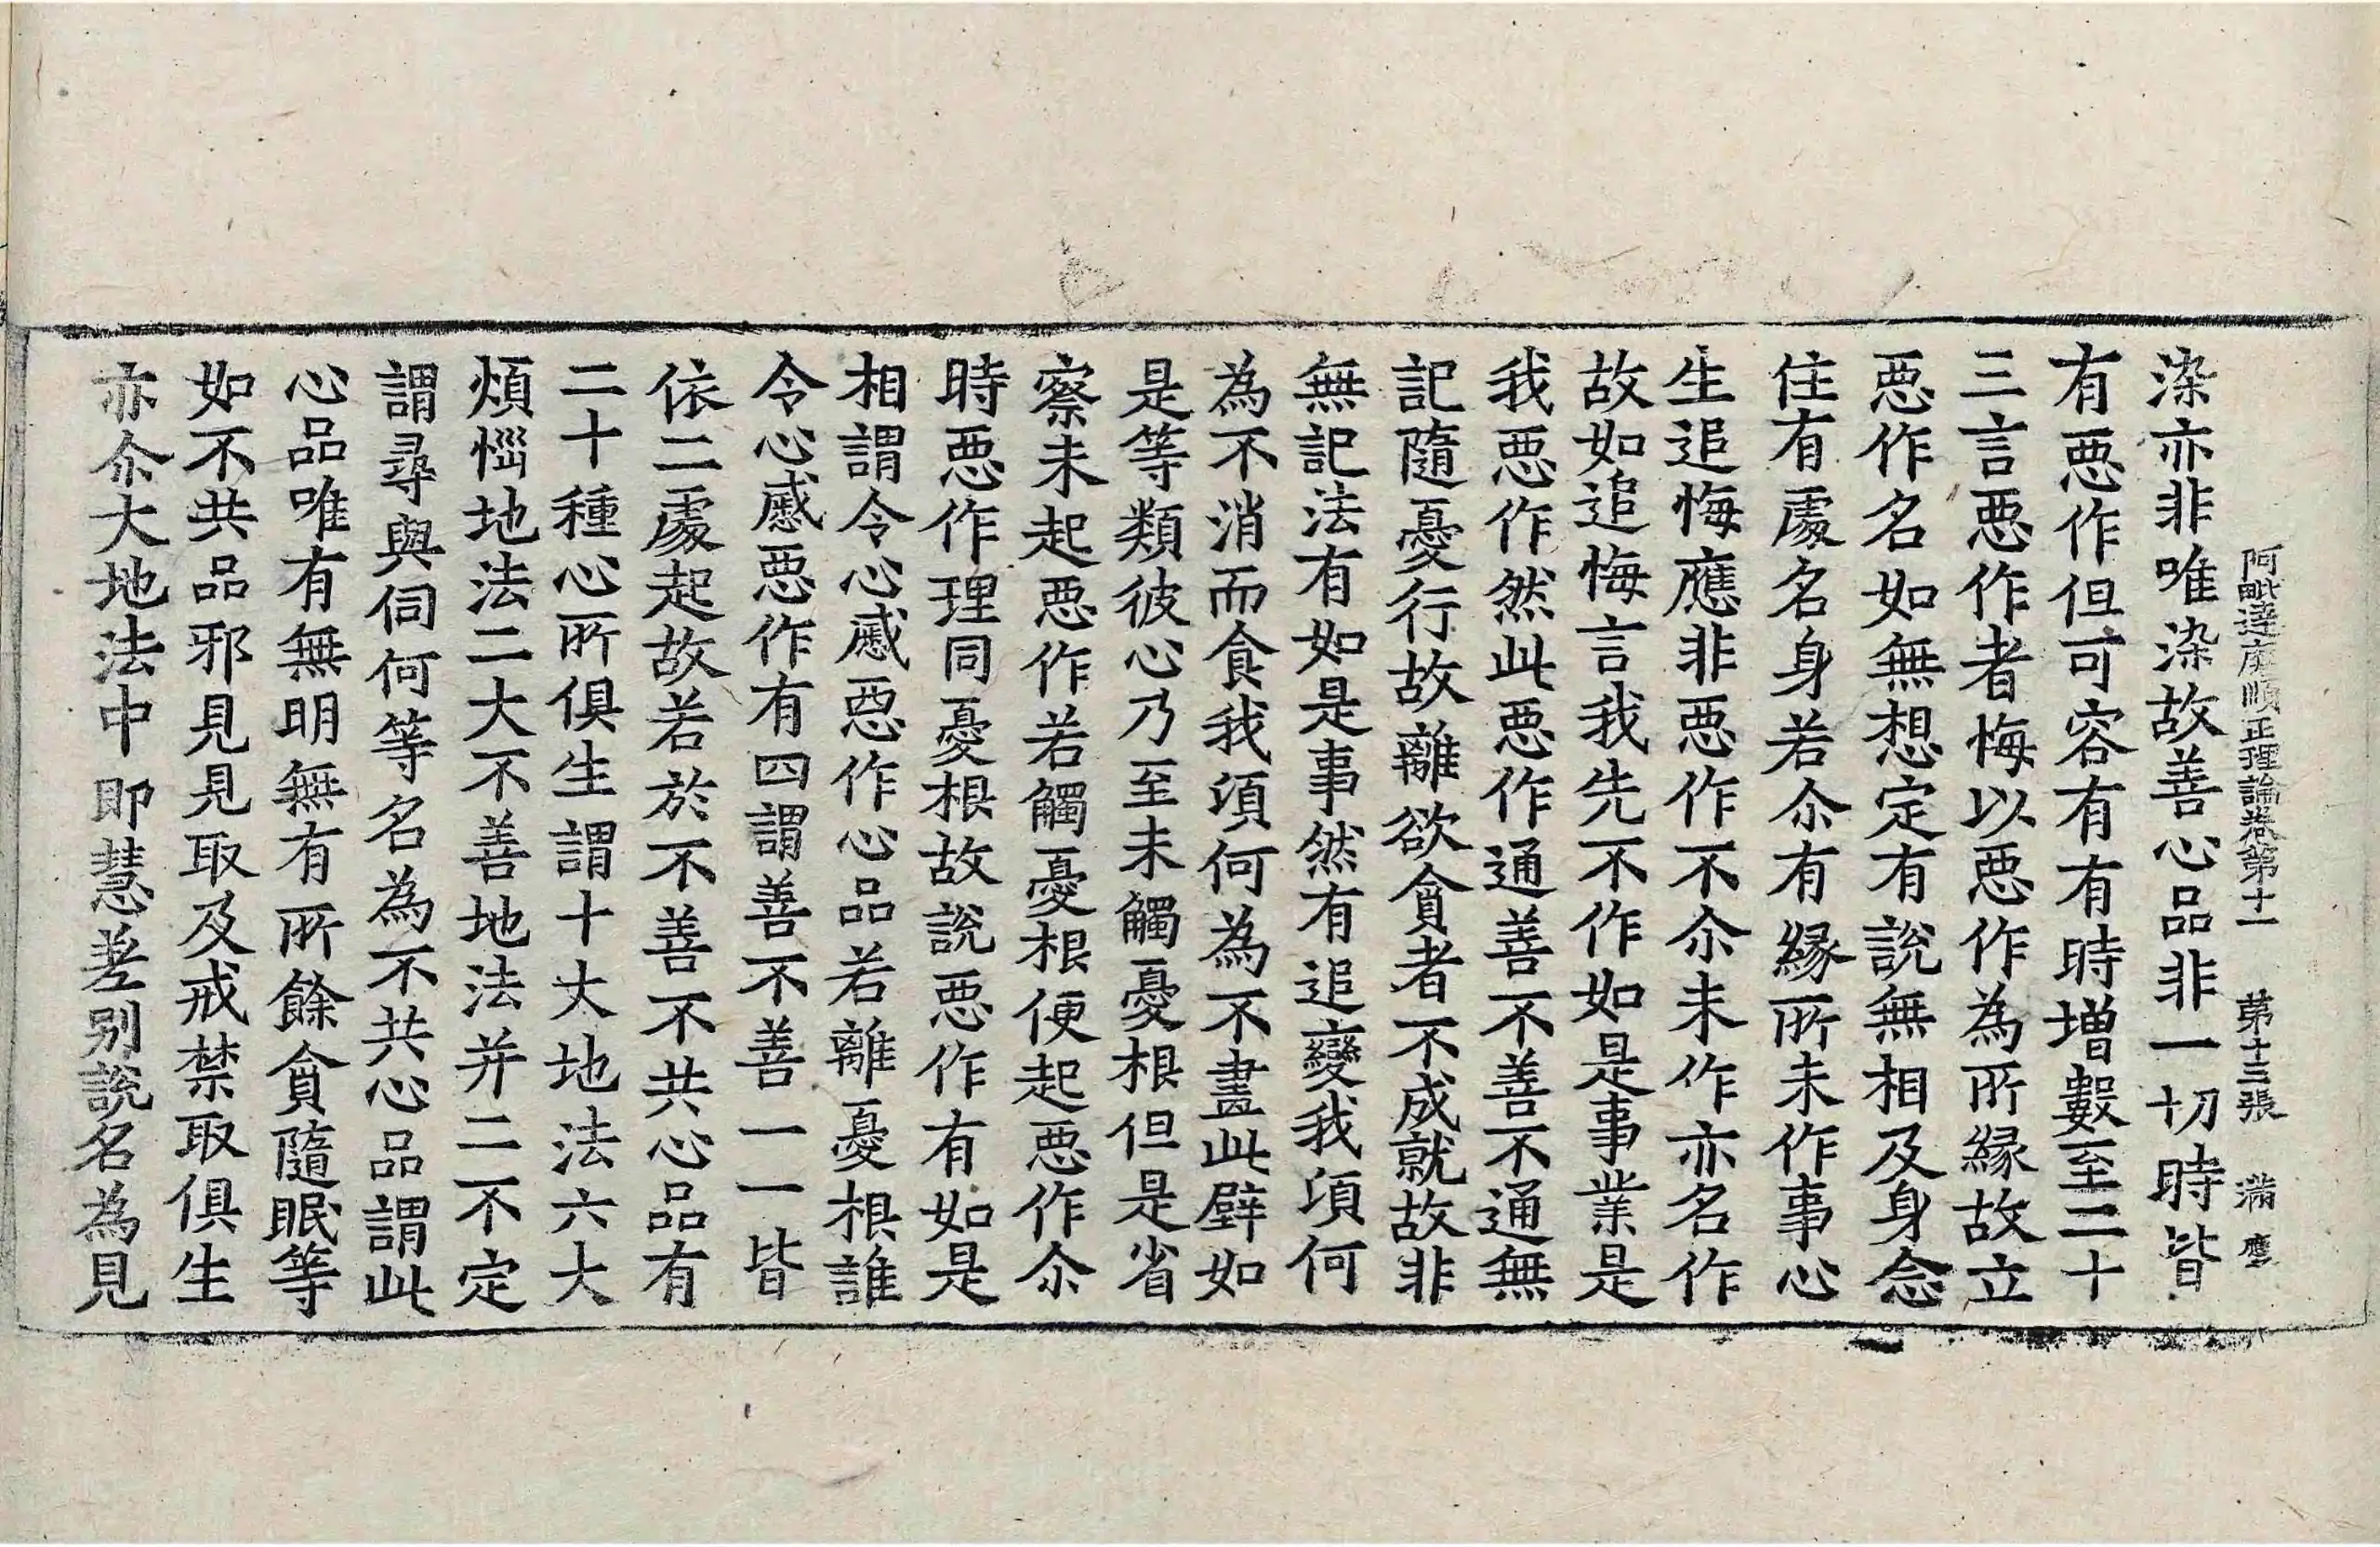 阿毗達磨順正理論卷第十一　第十三張　滿　應
染亦非唯染故善心品非一切時皆
有惡作但可容有有時增數至二十
三言惡作者悔以惡作為所緣故立
惡作名如無想定有說無相及身念
住有處名身若尒有緣所未作事心
生追悔應非惡作不尒未作亦名作
故如追悔言我先不作如是事業是
我惡作然此惡作通善不善不通無
記隨憂行故離欲貪者不成就故非
無記法有如是事然有追變我頃何
為不消而食我頃何為不畫此壁如
是等類彼心乃至未觸憂根但是省
察未起惡作若觸憂根便起惡作尒
時惡作理同憂根故說惡作有如是
相謂令心慼惡作心品若離憂根誰
令心慼惡作有四謂善不善一一皆
依二處起故若於不善不共心品有
二十種心所俱生謂十大地法六大
煩惱地法二大不善地法并二不定
謂尋與伺何等名為不共心品謂此
心品唯有無明無有所餘貪隨眠等
如不共品邪見見取及戒禁取俱生
亦尒大地法中即慧差別說名為見